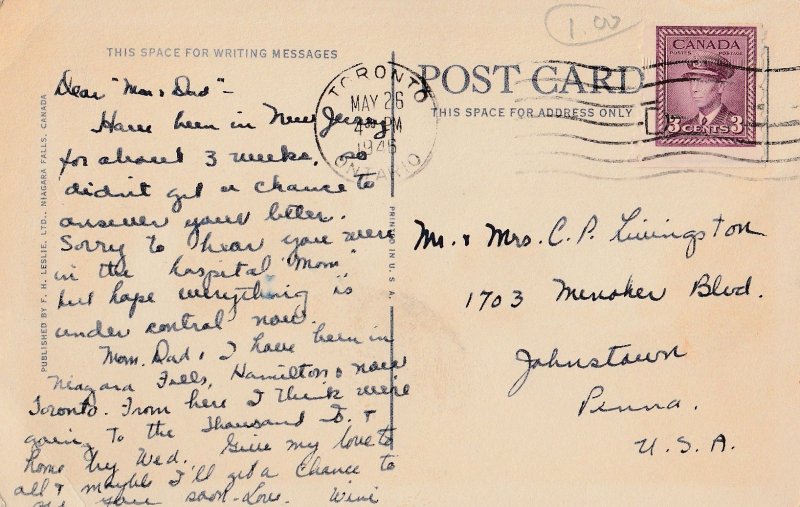 1.00
THIS SPACE FOR WRITING MESSAGES
POST CARD
THIS SPACE FOR ADDRESS ONLY
CANADA
POSTES POSTAGE
3 CENTS 3
TORONTO
MAY 26
PM
1946
ONTARIO
Dear "Mom & Dad" -
Have been in New Jersey
for about 3 weeks, so
didn't get a chance to
answer your letter.
Sorry to hear you were
in the hospital "Mom"
but hope everything is
under control now.
Mom, Dad & I have been in
Niagara Falls, Hamilton & now
Toronto. From here I think were
going to the Thousand Is. &
home by Wed. Give my love to
all & maybe I'll get a chance to
you soon - Love.
Mr. & Mrs. C. P. Livingston
1703 Menoher Blvd.
Johnstown
Penna.
U.S.A.
PUBLISHED BY F. H. LESLIE, LTD., NIAGARA FALLS, CANADA
PRINTED IN U. S. A.